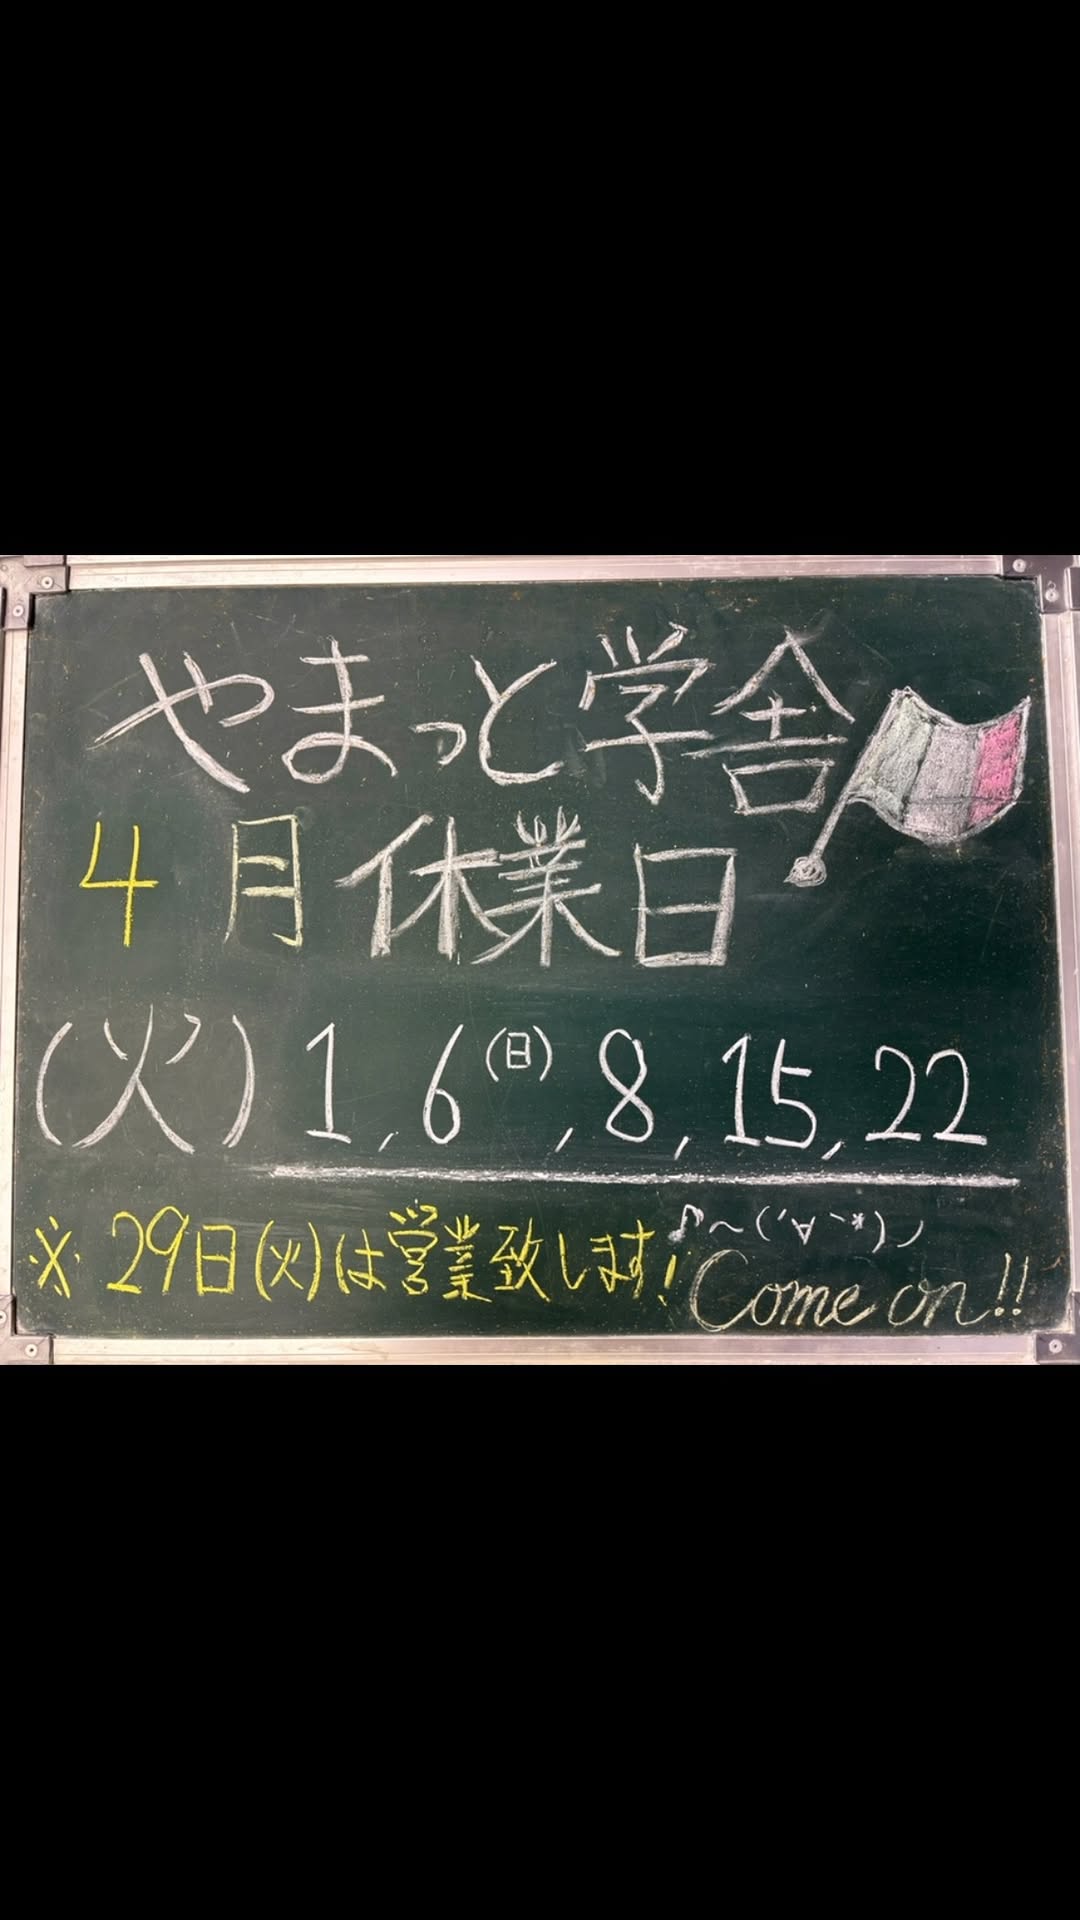 やまっと学舎
4月休業日
(火) 1, 6(日), 8, 15, 22
※ 29日(火)は営業致します! ♪〜(´∀｀*)ノ
Come on!!